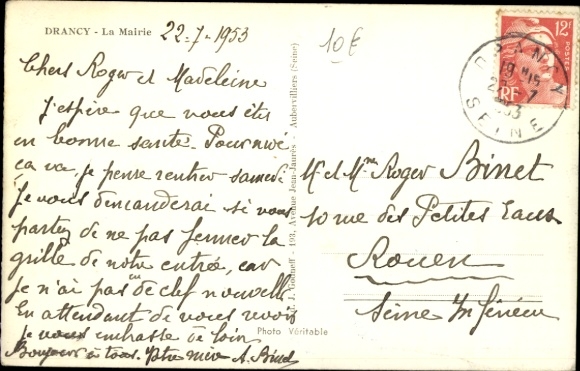 DRANCY - La Mairie 22-7-1953
10€
Chers Roger et Madeleine
J'espère que vous êtes
en bonne santé. Pour moi
ça va, je pense rentrer samedi
Je vous demanderai si vous
partez de ne pas fermer la
grille de notre entrée, car
je n'ai pas de clef nouvelle
En attendant de vous revoir
je vous embrasse de loin
Bonjour à tous. Votre mère A. Binet
193, Avenue Jean-Jaurès - Aubervilliers (Seine)
Photo Véritable
12F
POSTES
RF
DRANCY
19H15
22-7
1953
SEINE
M. et Mme Roger Binet
10 rue des Petites Eaux
Rouen
Seine Inférieure